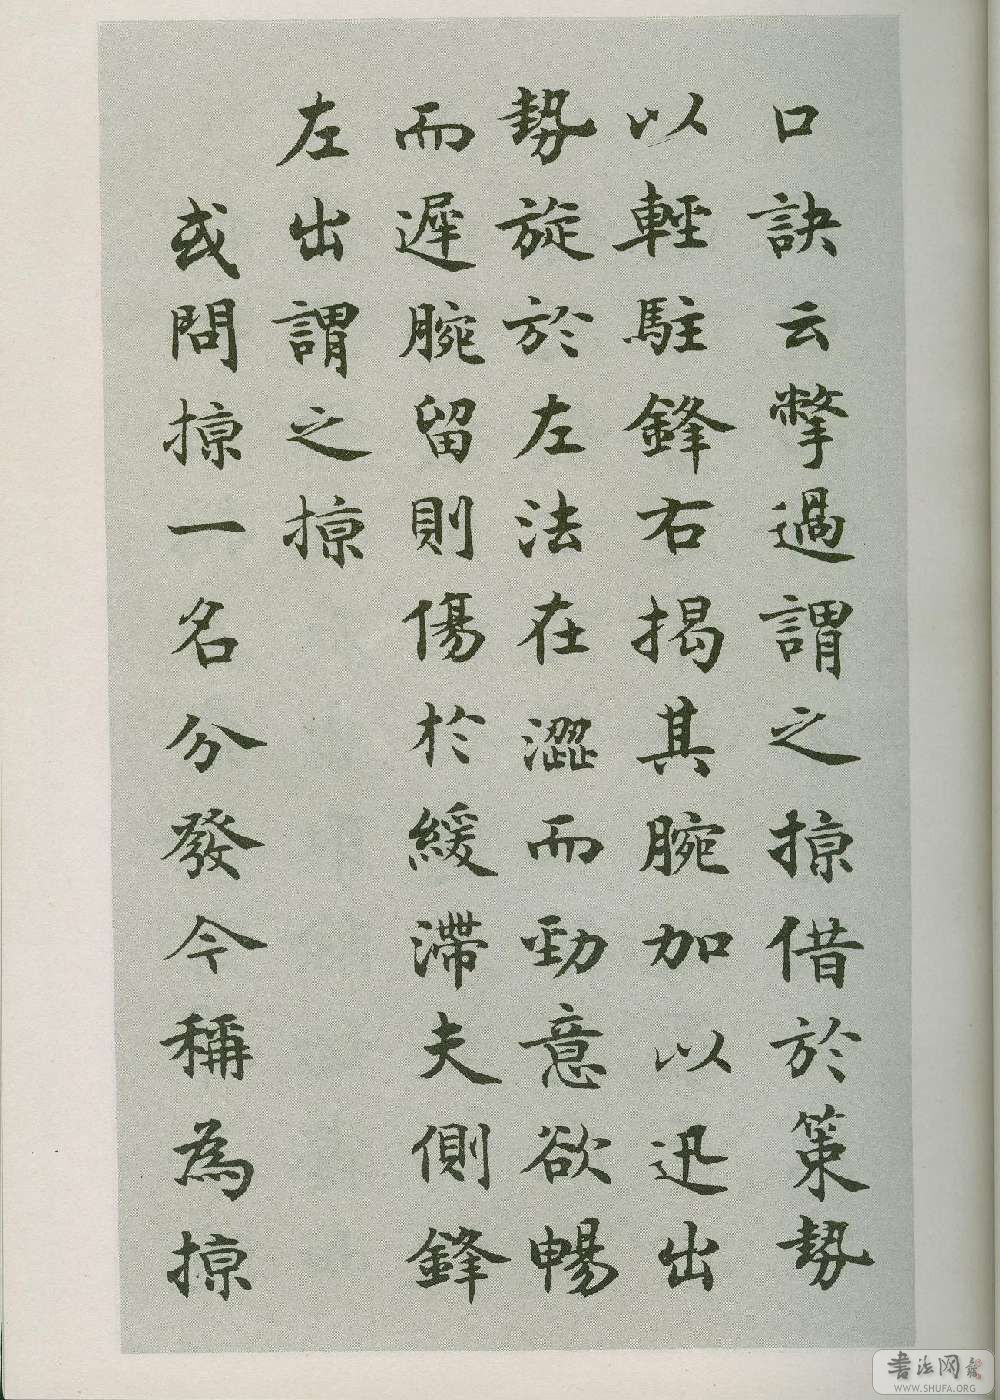 口訣云撆過謂之掠借於策勢
以輕駐鋒右揭其腕加以迅出
勢旋於左法在澀而勁意欲暢
而遲腕留則傷於緩滯夫側鋒
左出謂之掠
或問掠一名分發今稱為掠
書法网
WWW.SHUFA.ORG